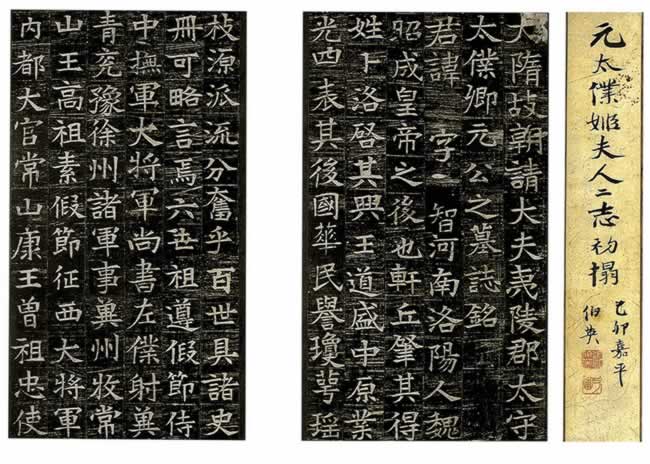 元太僕姬夫人二志初搨
己卯嘉平
伯英
大隋故朝請大夫夷陵郡太守
太僕卿元公之墓誌銘
君諱 字 智河南洛陽人魏
昭成皇帝之後也軒丘肇其得
姓下洛啓其興王道盛中原業
光四表其後國華民譽瓊萼瑶
枝源派流分奮乎百世具諸史
冊可略言焉六世祖遵假節侍
中撫軍大將軍尚書左僕射冀
青兖豫徐州諸軍事冀州牧常
山王高祖素假節征西大將軍
内都大官常山康王曾祖忠使